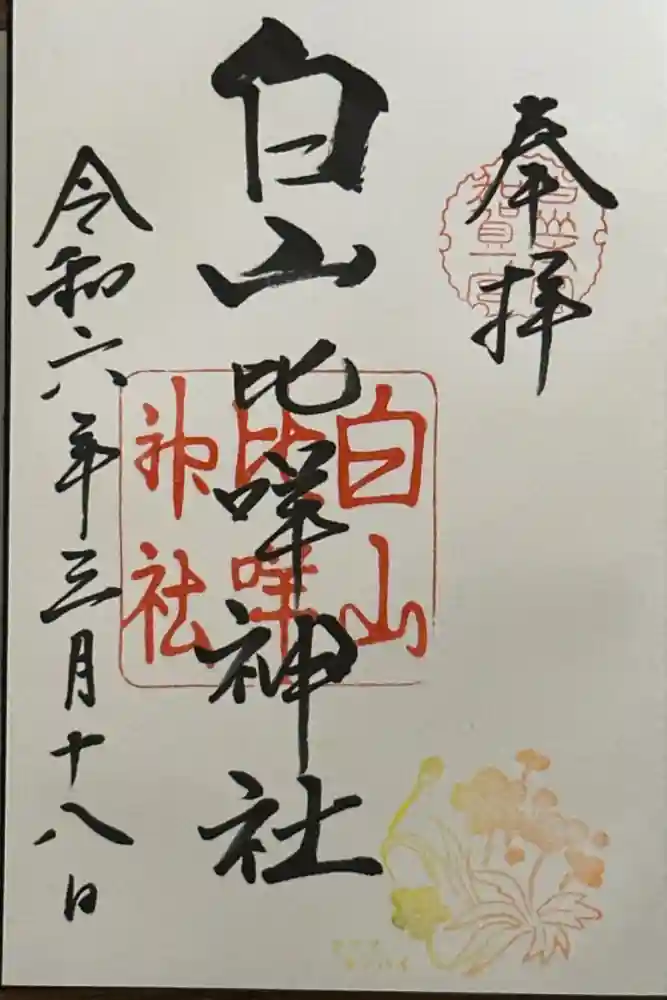 奉拝
白山比咩神社
令和六年三月十八日
白山
比咩
神社